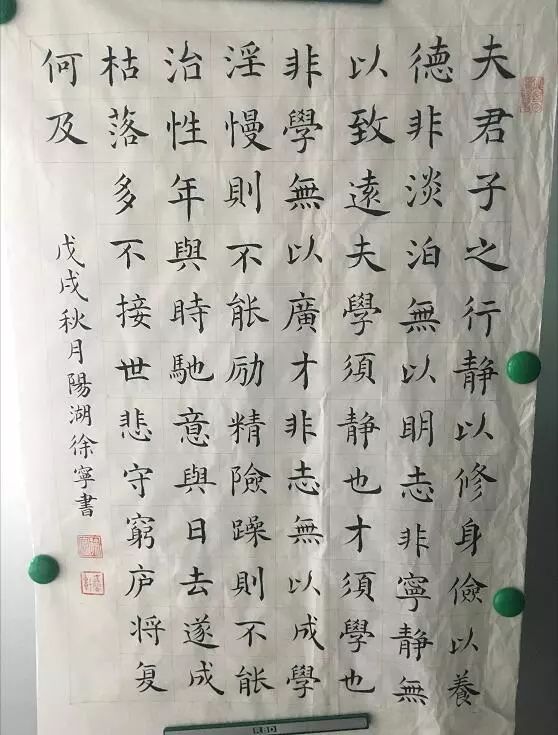 夫君子之行静以修身儉以養
德非淡泊無以明志非寧静無
以致遠夫學須静也才須學也
非學無以廣才非志無以成學
淫慢則不能励精險躁則不能
治性年與時馳意與日去遂成
枯落多不接世悲守窮庐将复
何及
戊戌秋月陽湖徐寧書